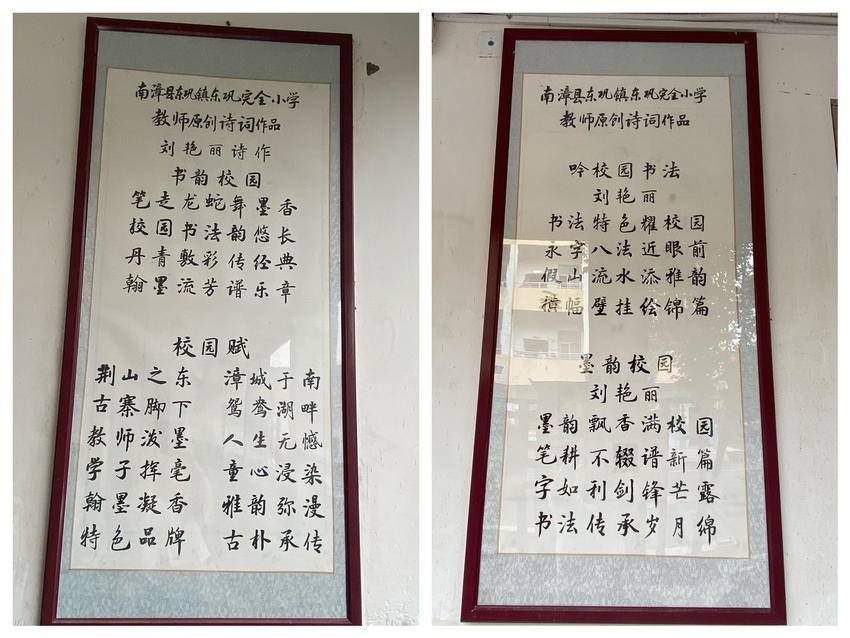 南漳县东巩镇东巩完全小学
教师原创诗词作品
刘艳丽诗作
书韵校园
笔走龙蛇舞墨香
校园书法韵悠长
丹青敷彩传经典
翰墨流芳谱乐章
校园赋
荆山之东 漳城于南
古寨脚下 鸳鸯湖畔
教师泼墨 人生无憾
学子挥毫 童心浸染
翰墨凝香 雅韵弥漫
特色品牌 古朴承传
南漳县东巩镇东巩完全小学
教师原创诗词作品
吟校园书法
刘艳丽
书法特色耀校园
永字八法近眼前
假山流水添雅韵
横幅壁挂绘锦篇
墨韵校园
刘艳丽
墨韵飘香满校园
笔耕不辍谱新篇
字如利剑锋芒露
书法传承岁月绵